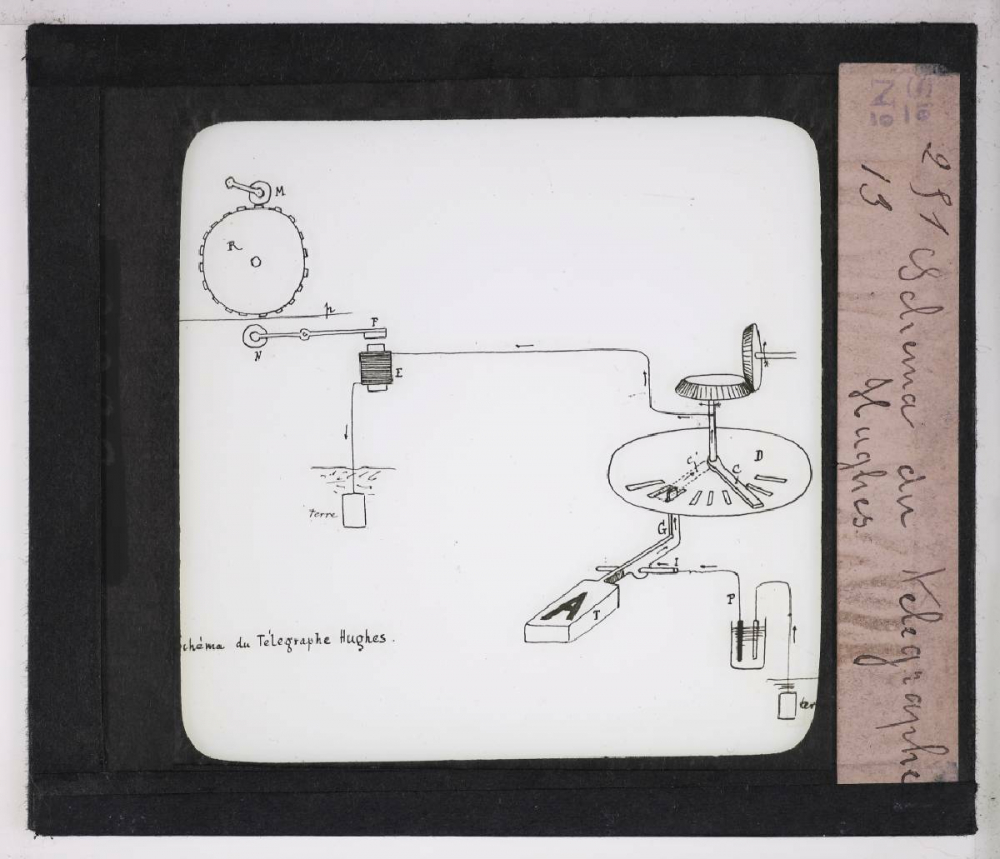 M
R
p
F
N
E
terre
D
C'
C
G
I
A
T
P
ter
chéma du Télégraphe Hughes.
Sie
No
291 Schema du Telegraphe
13 Hughes